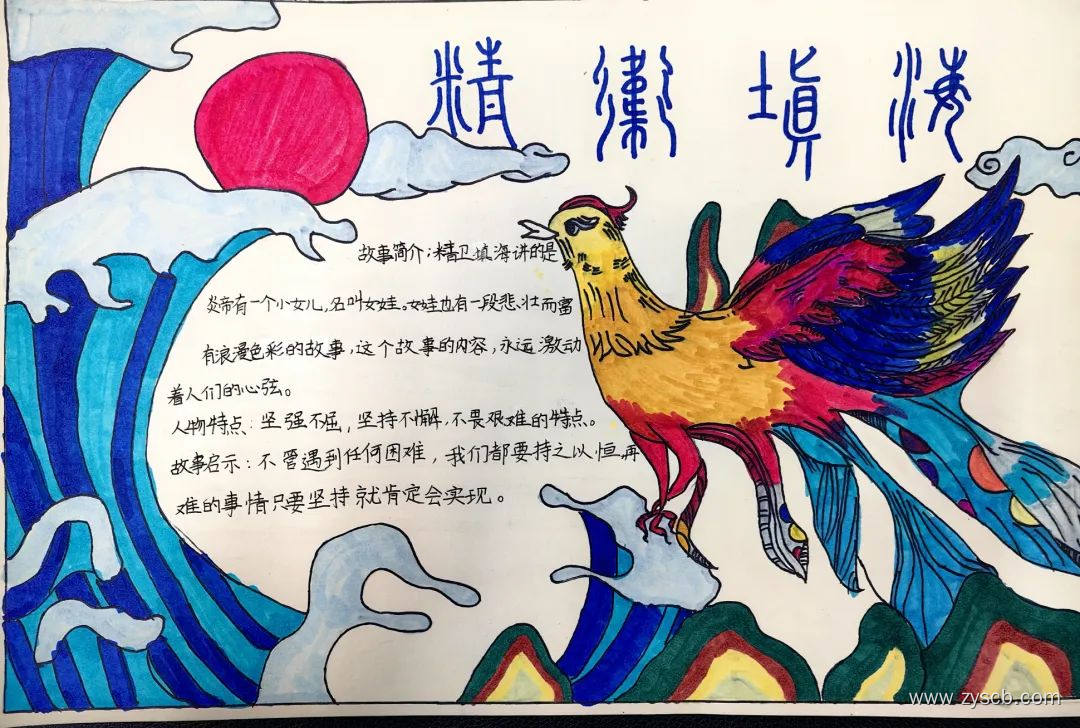 精衛填海
故事简介：精卫填海讲的是
炎帝有一个小女儿，名叫女娃。女娃也有一段悲壮而富
有浪漫色彩的故事，这个故事的内容，永远激动
着人们的心弦。
人物特点：坚强不屈，坚持不懈，不畏艰难的特点。
故事启示：不管遇到任何困难，我们都要持之以恒，再
难的事情只要坚持就肯定会实现。
www.zyscb.com